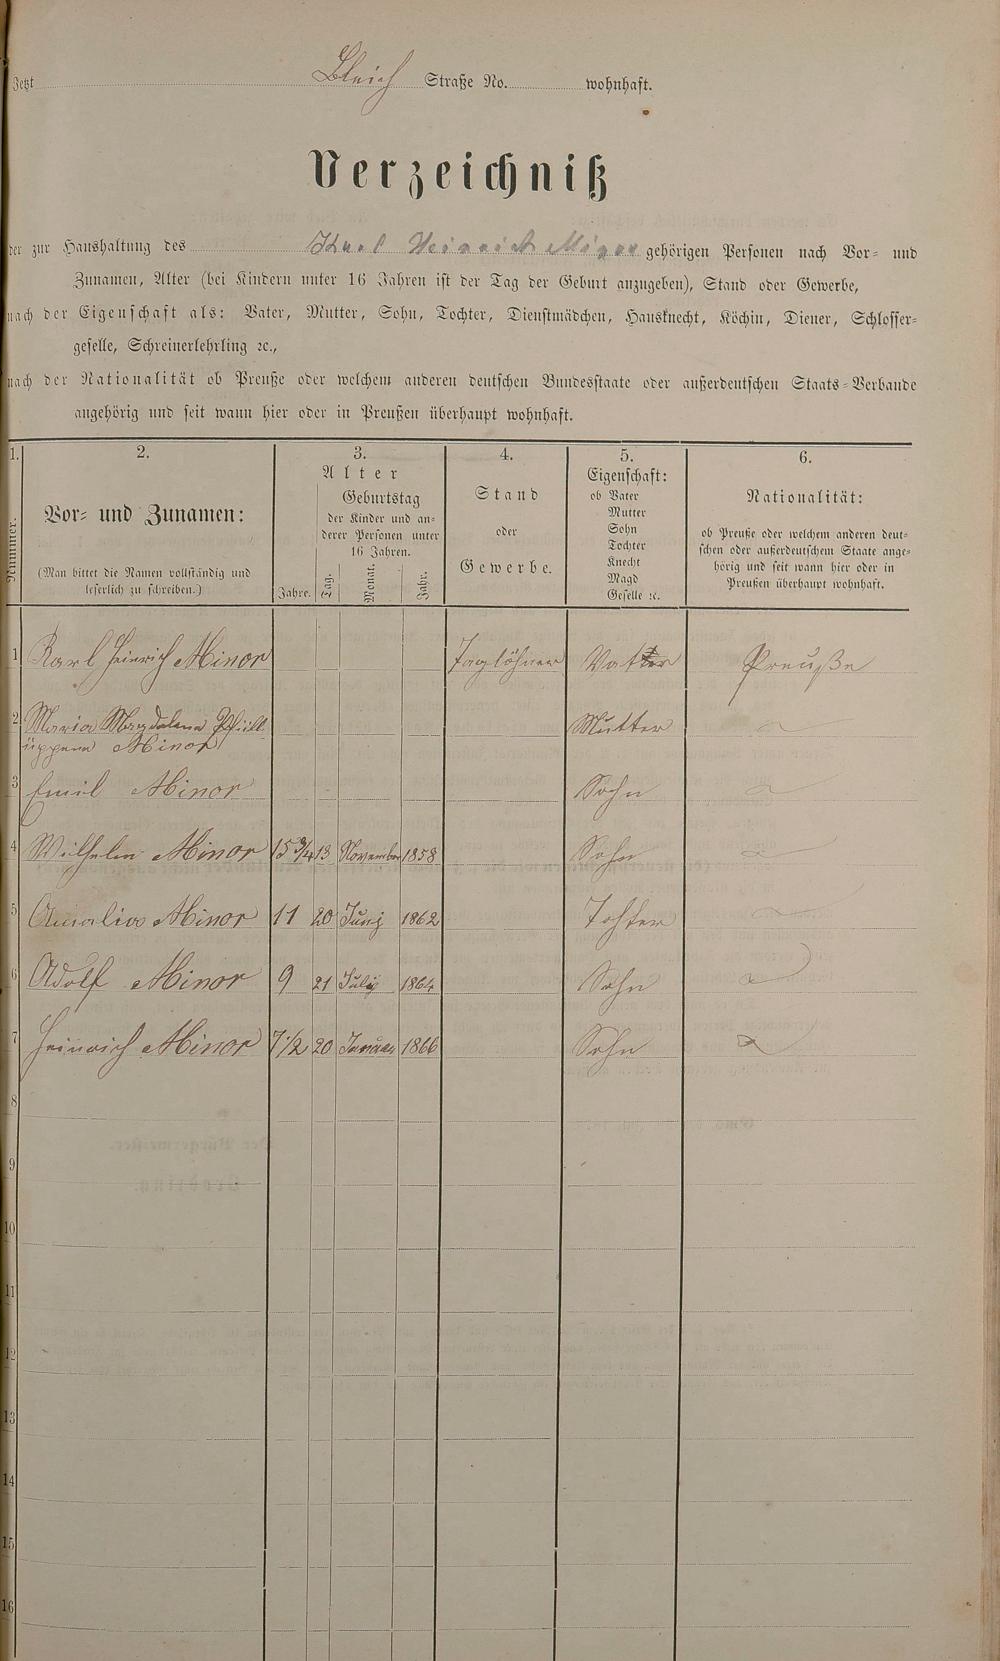 Jetzt Bleich Straße No. wohnhaft.
Verzeichniß
der zur Haushaltung des Karl Heinrich Minor gehörigen Personen nach Vor- und
Zunamen, Alter (bei Kindern unter 16 Jahren ist der Tag der Geburt anzugeben), Stand oder Gewerbe,
nach der Eigenschaft als: Vater, Mutter, Sohn, Tochter, Dienstmädchen, Hausknecht, Köchin, Diener, Schlosser-
geselle, Schreinerlehrling ꝛc.,
nach der Nationalität ob Preuße oder welchem anderen deutschen Bundesstaate oder außerdeutschen Staats-Verbande
angehörig und seit wann hier oder in Preußen überhaupt wohnhaft.
1. 2. 3. 4. 5. 6.
Nummer.
Vor- und Zunamen:
(Man bittet die Namen vollständig und
leserlich zu schreiben.)
Alter
Geburtstag
der Kinder und an-
derer Personen unter
16 Jahren.
Jahre. Tag. Monat. Jahr.
Stand
oder
Gewerbe.
Eigenschaft:
ob Vater
Mutter
Sohn
Tochter
Knecht
Magd
Geselle ꝛc.
Nationalität:
ob Preuße oder welchem anderen deut-
schen oder außerdeutschem Staate ange-
hörig und seit wann hier oder in
Preußen überhaupt wohnhaft.
1 Karl Heinrich Minor Taglöhner Vater Preuße
2 Maria Magdalena
Minor Mutter
3 Emil Minor Sohn
4 Wilhelm Minor 15 3/4 13 November 1858 Sohn
5 Amalia Minor 11 20 Junj 1862 Tohter
6 Adolf Minor 9 21 Julij 1864 Sohn
7 Heinrich Minor 7 1/2 20 Januar 1866 Sohn
8
9
10
11
12
13
14
15
16